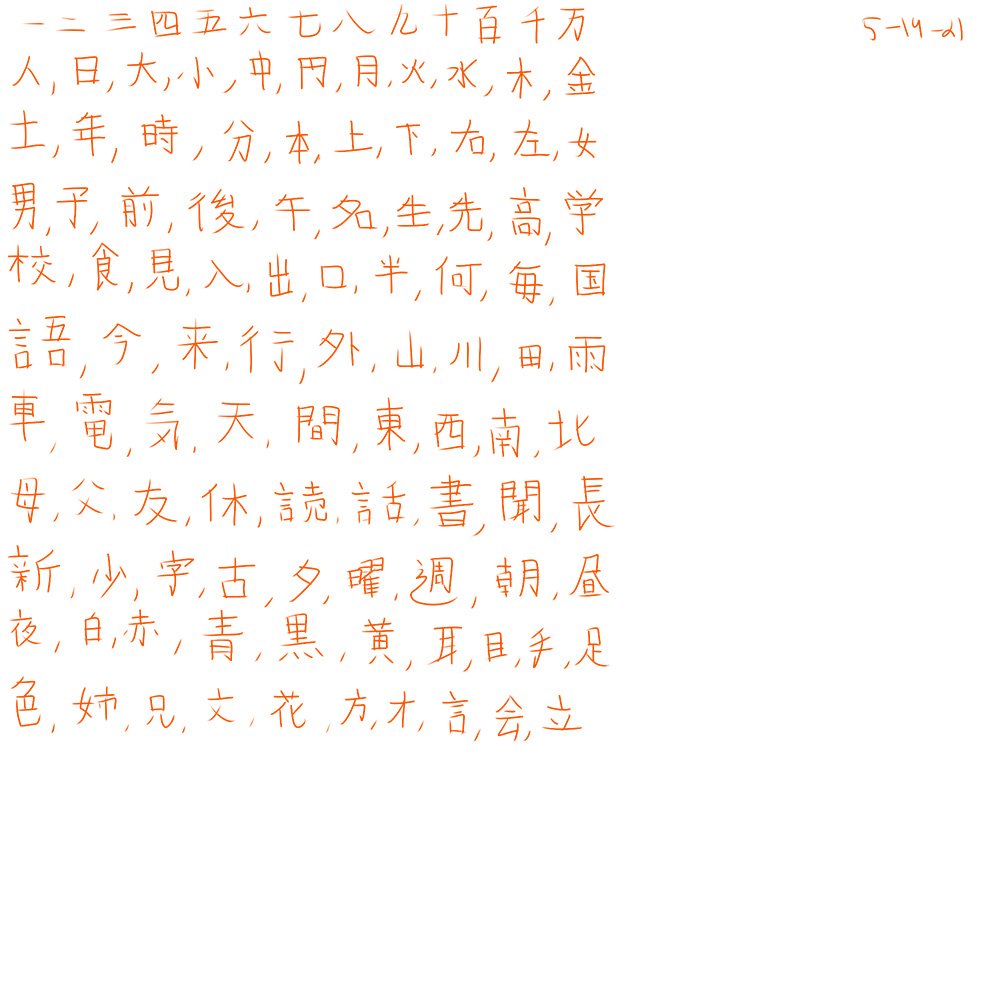 一 二 三 四 五 六 七 八 九 十 百 千 万 5-19-21
人, 日, 大, 小, 中, 円, 月, 火, 水, 木, 金
土, 年, 時, 分, 本, 上, 下, 右, 左, 女
男, 子, 前, 後, 午, 名, 生, 先, 高, 学
校, 食, 見, 入, 出, 口, 半, 何, 毎, 国
語, 今, 来, 行, 外, 山, 川, 田, 雨
車, 電, 気, 天, 間, 東, 西, 南, 北
母, 父, 友, 休, 読, 話, 書, 聞, 長
新, 少, 字, 古, 夕, 曜, 週, 朝, 昼
夜, 白, 赤, 青, 黒, 黄, 耳, 目, 手, 足
色, 姉, 兄, 文, 花, 方, 才, 言, 会, 立